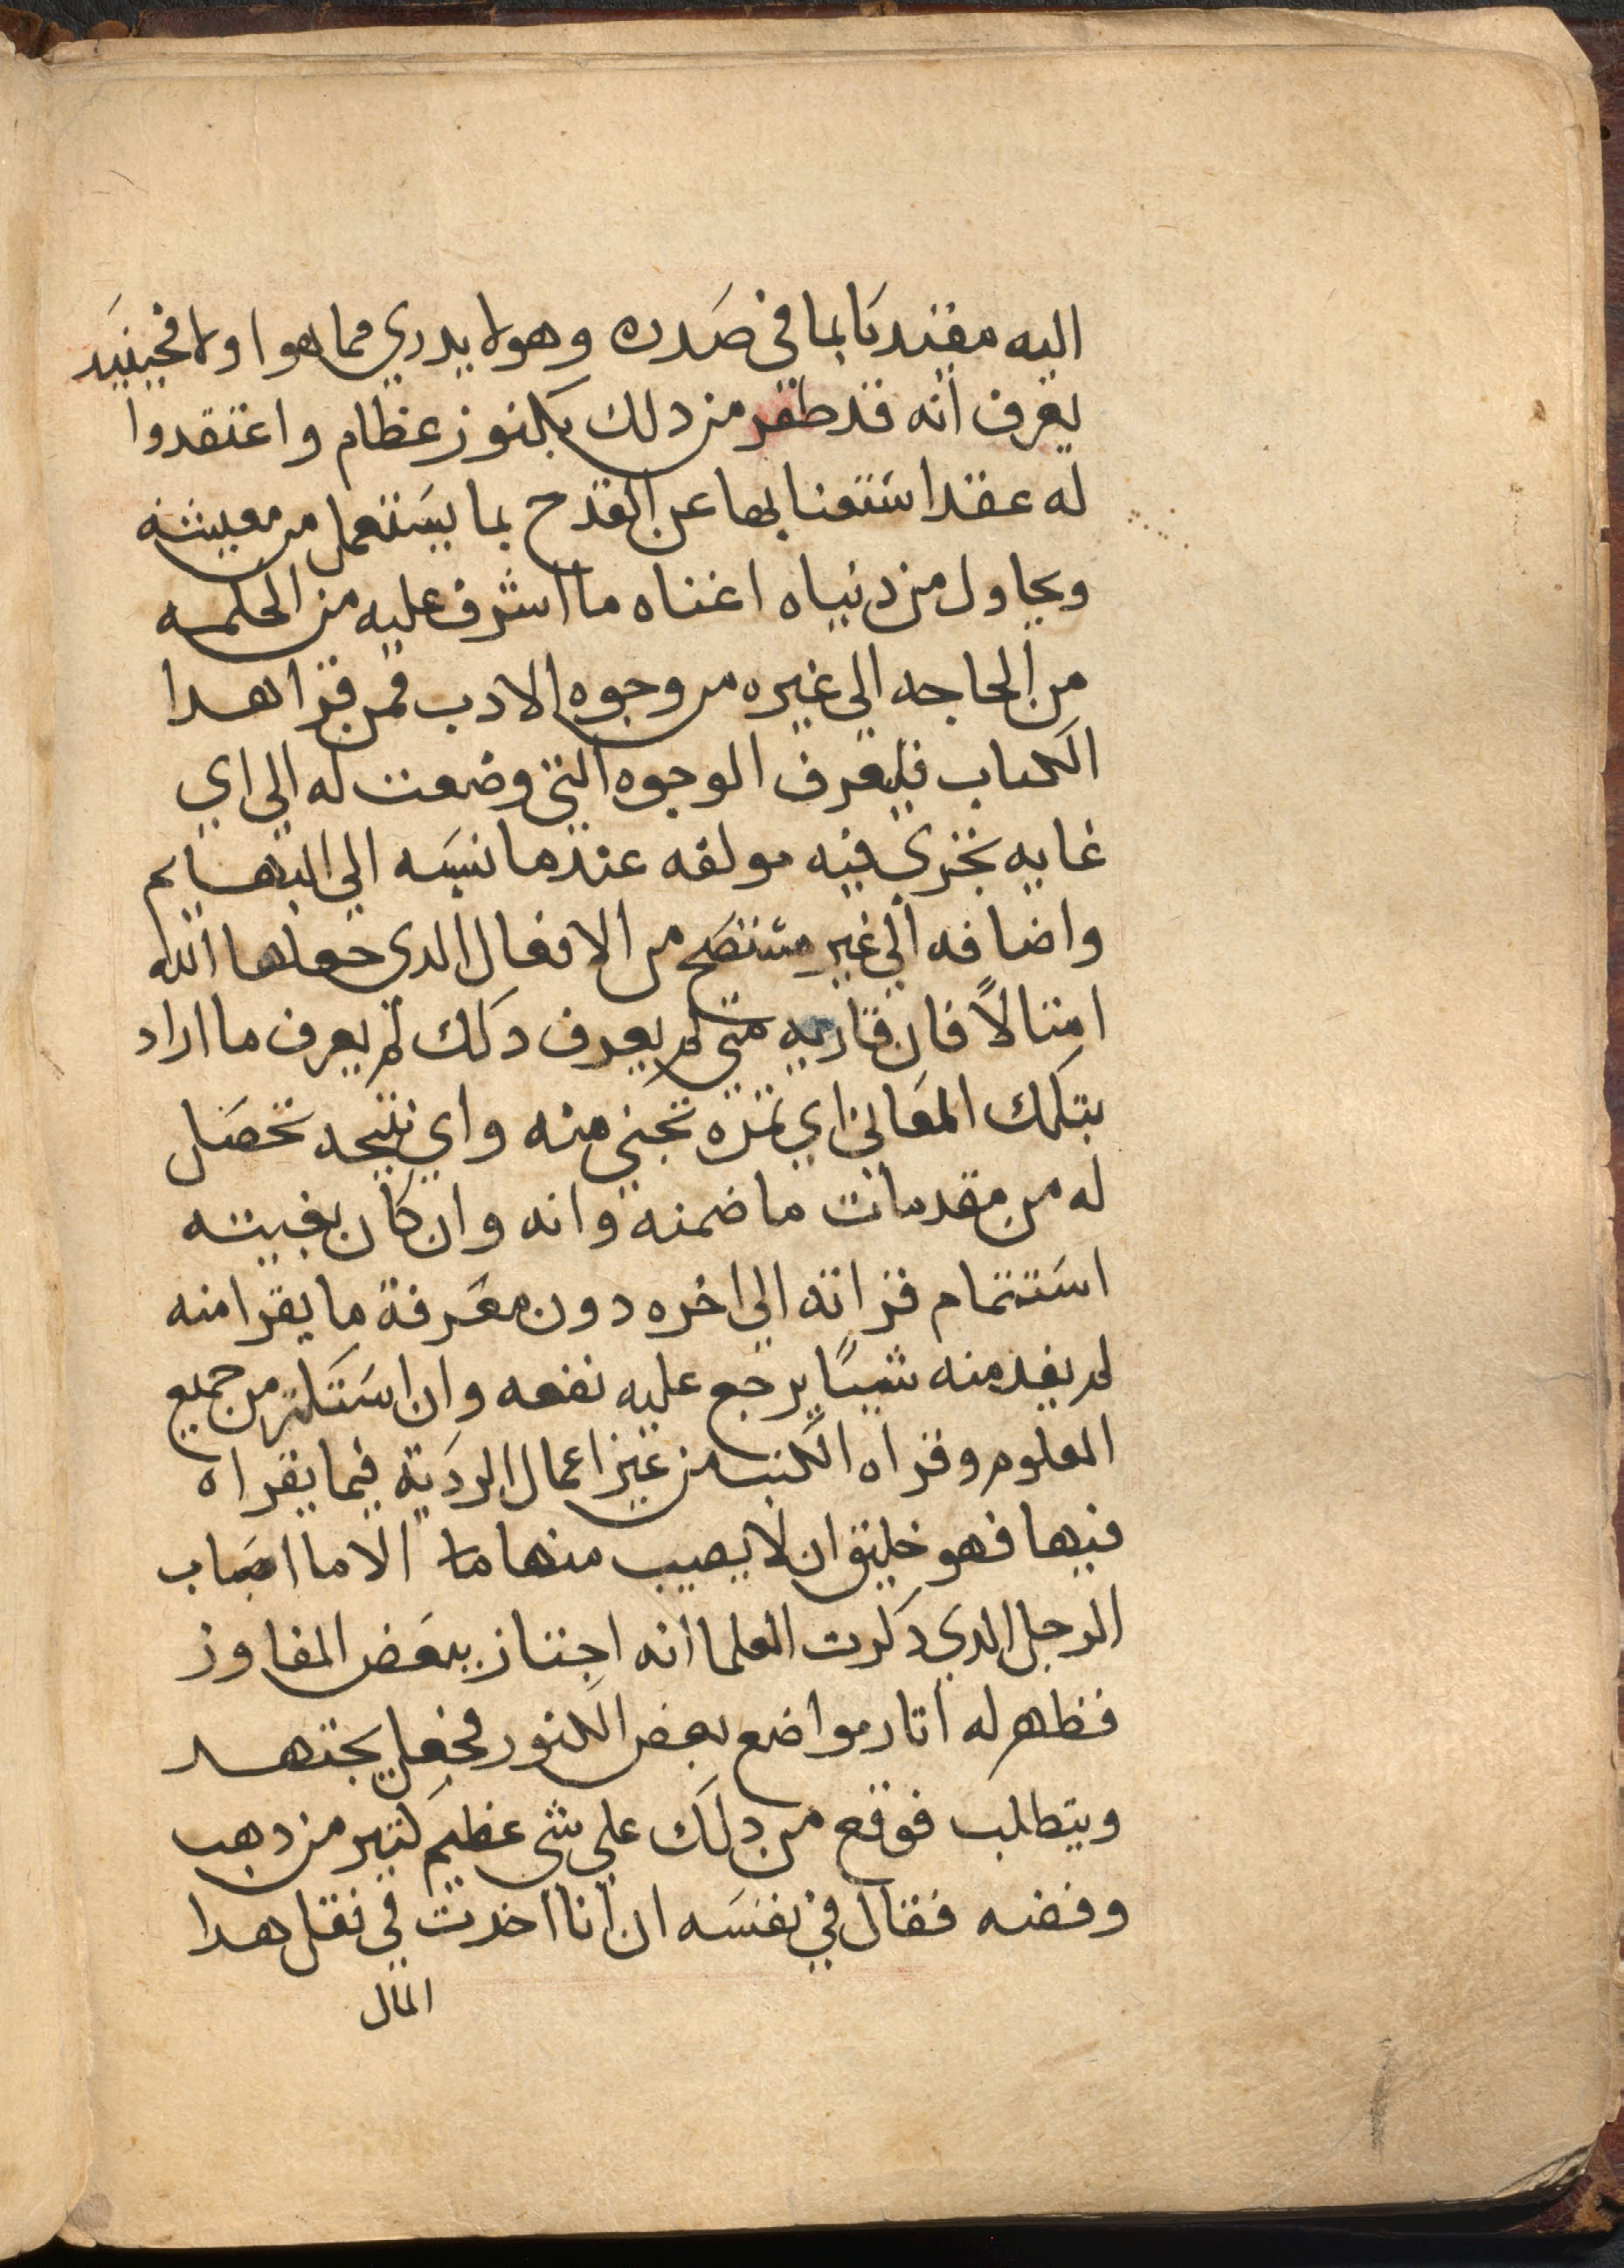 اليه مقتديا بما في صدره وهو لا يدري مما هوا ولا فحينيد
يعرف انه قد طفر من دلك بكنوز عظام واعتقدوا
له عقدا ستغنا بها عن القدح بما يستعمل من معيشته
ويحاول من دنياه اغناه ما اشرف عليه من الحكمه
من الحاجه الي غيره من وجوه الادب فمن قرا هدا
الكتاب فليعرف الوجوه التي وضعت له الي اي
غايه يجري فيه مولفه عندما نسبه الي البهايم
واضافه الي غير متنصح من الافعال الدي جعلها الله
امتالاً فان قاريه متي لم يعرف دلك لم يعرف ما اراد
بتلك المعاني اي تمره تجني منه واي نتيجه تحصل
له من مقدمات ما ضمنه وانه وان كان بغيته
استتمام قراته الي اخره دون معرفة ما يقرا منه
لم يفد منه شياً يرجع عليه نفعه وان استكتر من جميع
العلوم وقراه الكتب من غير اعمال الردية فيما يقراه
فيها فهو خليق ان لا يصيب منها ما الا ما اصاب
الرجل الدي دكرت العلما انه اجتاز ببعض المفاوز
فظهر له اتار مواضع بعض الكنوز فجعل يجتهد
ويتطلب فوقع من دلك علي شي عظيم كتير من دهب
وفضه فقال في نفسه ان انا اخدت في نقل هدا
المال